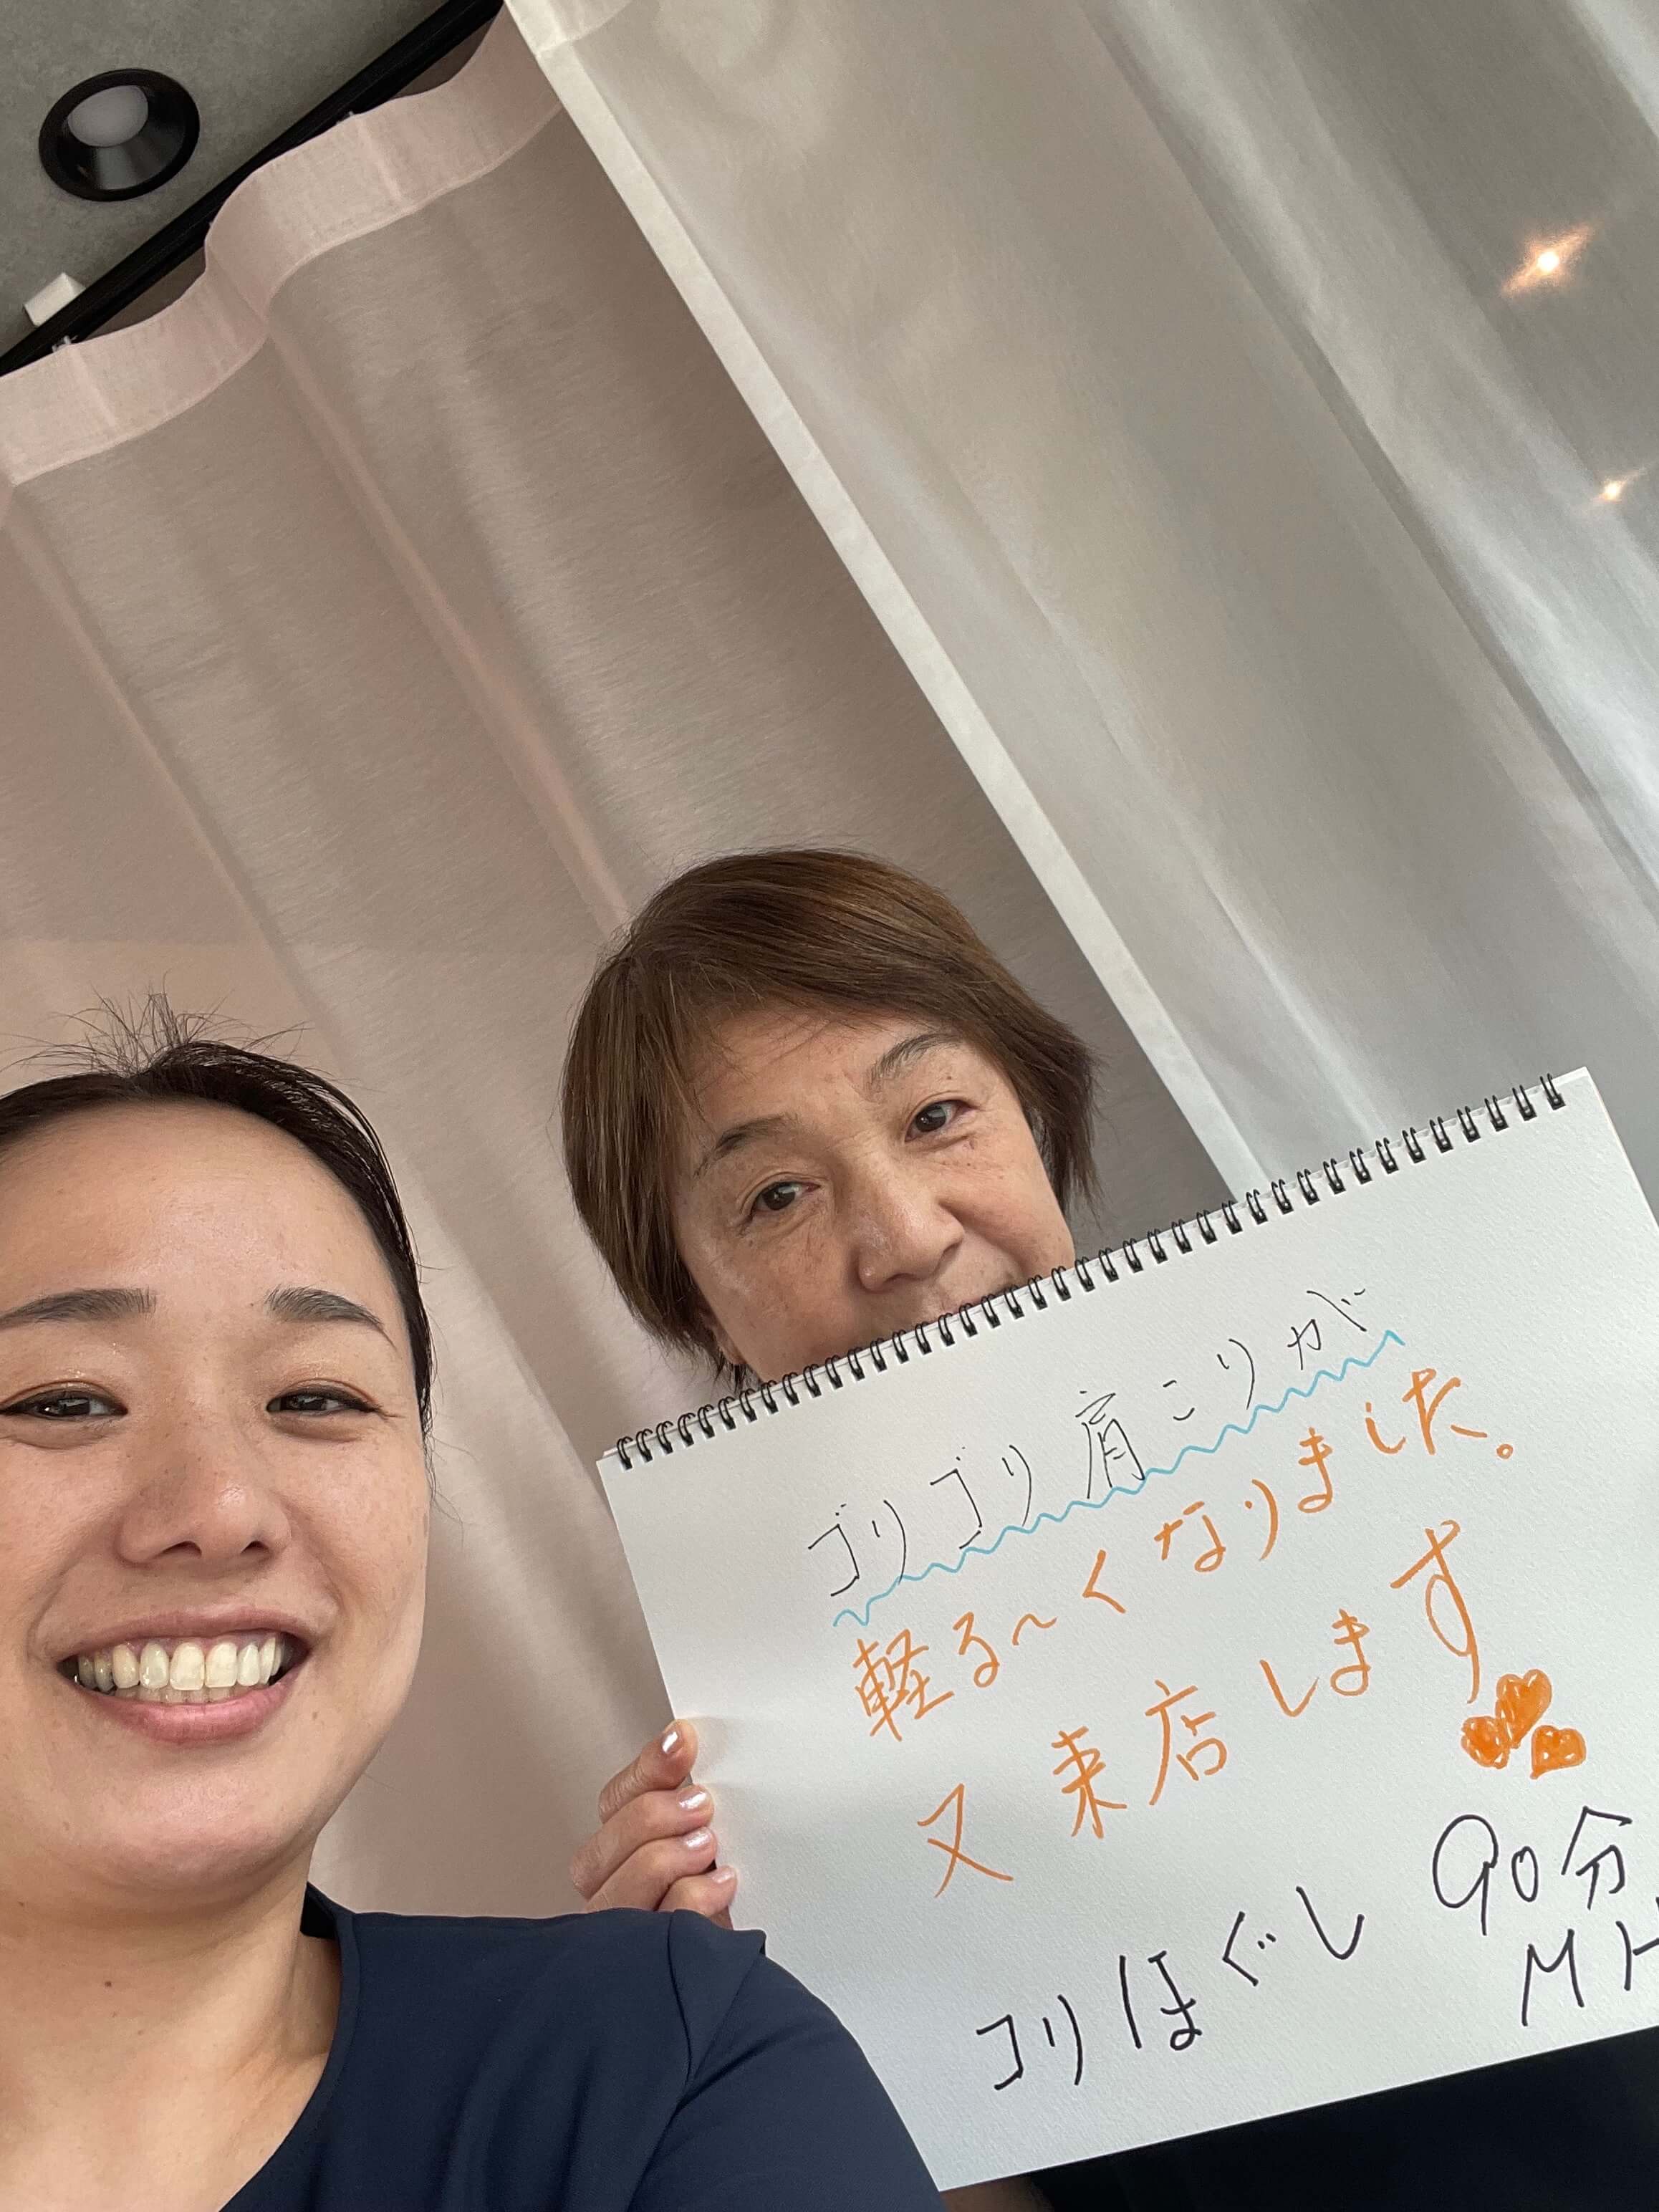 ゴリゴリ肩こりが
軽る〜くなりました。
又来店します
コリほぐし 90分
MH